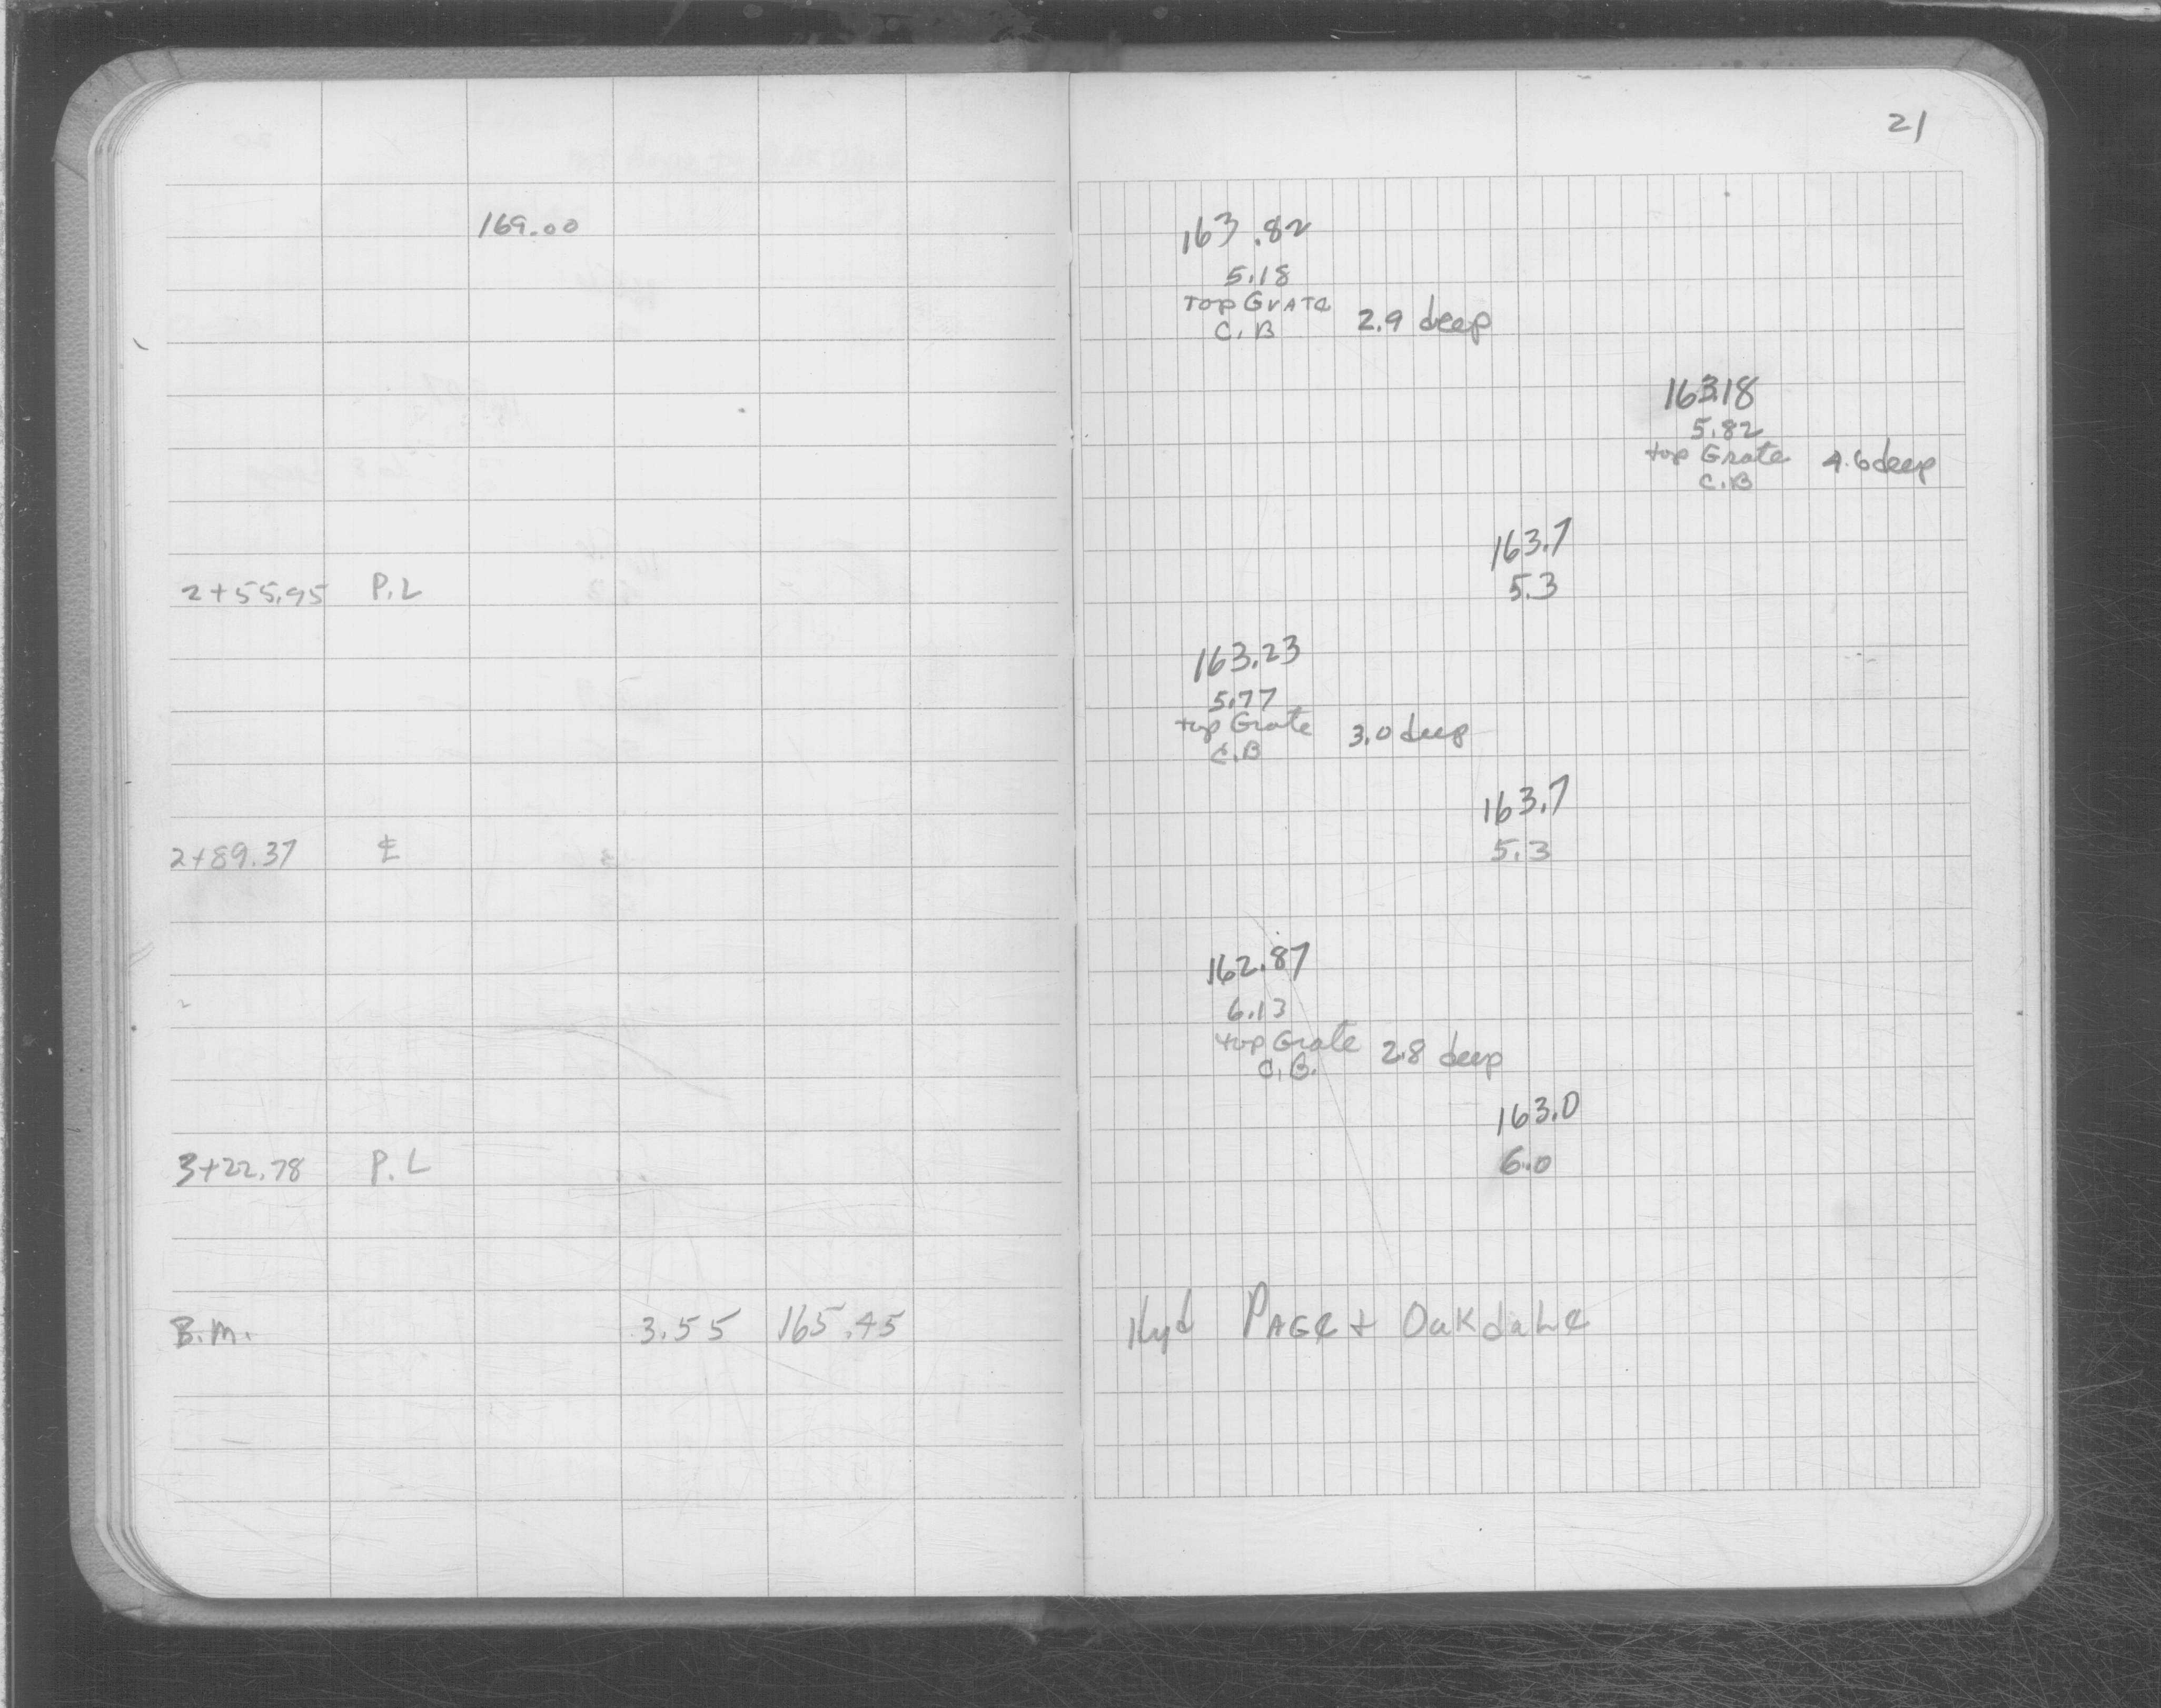 21
169.00
163.82
5.18
Top Grate
C.B 2.9 deep
163.18
5.82
top Grate 4.6 deep
C.B
163.7
2+55.95 P.L 5.3
163.23
5.77
top Grate 3.0 deep
C.B
163.7
2+89.37 ℄ 5.3
162.87
6.13
top Grate 2.8 deep
C.B.
163.0
3+22.78 P.L 6.0
B.M. 3.55 165.45 Hyd Page + Oakdale